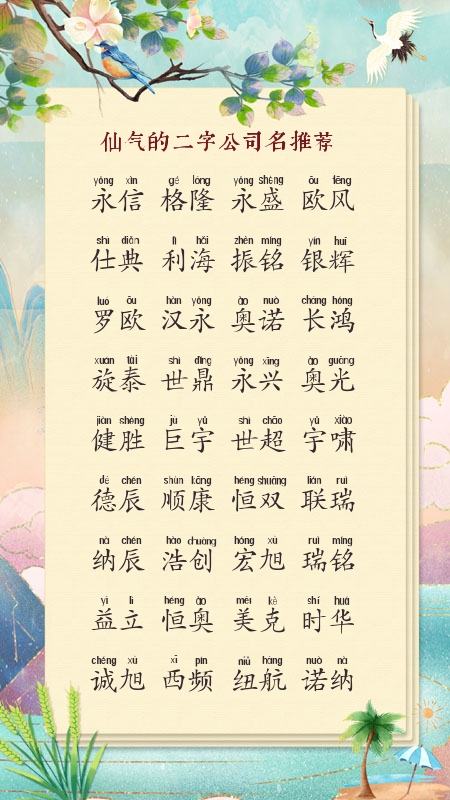 仙气的二字公司名推荐
yóng xìn gé lóng yóng shèng ōu fēng
永信 格隆 永盛 欧风
shì diǎn lì hǎi zhèn míng yín huī
仕典 利海 振铭 银辉
luó ōu hàn yóng ào nuò cháng hóng
罗欧 汉永 奥诺 长鸿
xuán tài shì dǐng yóng xīng ào guāng
旋泰 世鼎 永兴 奥光
jiàn shèng jù yǔ shì chāo yǔ xiào
健胜 巨宇 世超 宇啸
dé chén shùn kāng héng shuāng lián ruì
德辰 顺康 恒双 联瑞
nà chén hào chuàng hóng xù ruì míng
纳辰 浩创 宏旭 瑞铭
yì lì héng ào měi kè shí huá
益立 恒奥 美克 时华
chéng xù xī pín niǔ háng nuò nà
诚旭 西频 纽航 诺纳